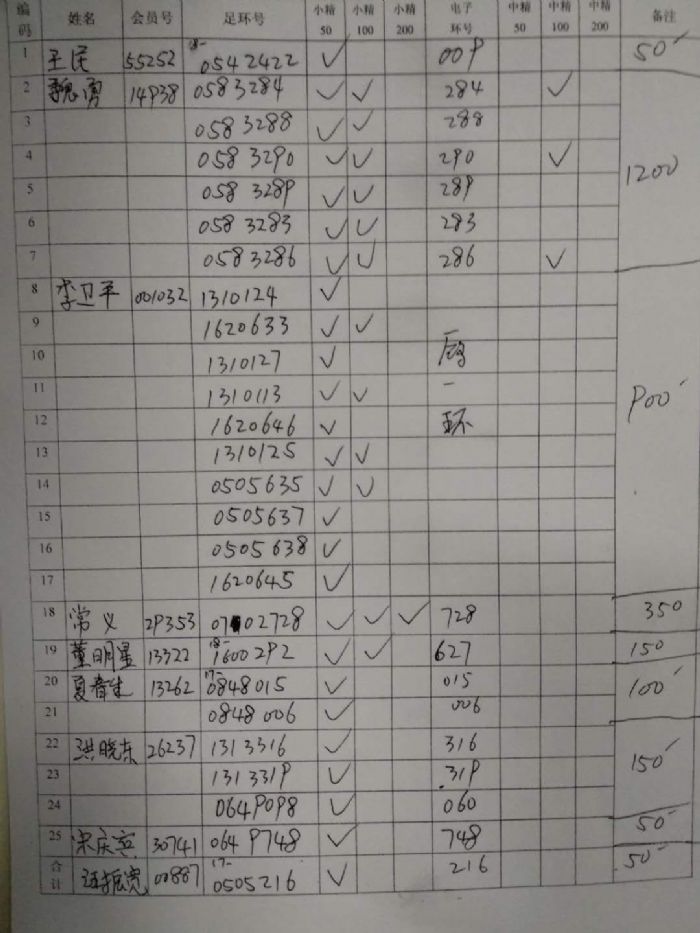 编码 姓名 会员号 足环号 小精50 小精100 小精200 电子环号 中精50 中精100 中精200 备注
1 王民 55252 18- 0542422 ✓ 00P 50
2 魏勇 14P38 0583284 ✓ ✓ 284 ✓ 1200
3 0583288 ✓ ✓ 288
4 0583290 ✓ ✓ 290 ✓
5 058328P ✓ ✓ 28P
6 0583283 ✓ ✓ 283
7 0583286 ✓ ✓ 286 ✓
8 李卫平 001032 1310124 ✓ P00
9 1620633 ✓ ✓
10 1310127 ✓
11 1310113 ✓ ✓ 一
12 1620646 ✓ 环
13 1310125 ✓ ✓
14 0505635 ✓ ✓
15 0505637 ✓
16 0505638 ✓
17 1620645 ✓
18 常义 2P353 0702728 ✓ ✓ ✓ 728 350
19 董明星 13322 18- 16002P2 ✓ ✓ 627 150
20 夏春生 13262 17- 0848015 ✓ 015 100
21 0848006 ✓ 006
22 洪晓东 26237 1313316 ✓ 316 150
23 131331P ✓ 31P
24 064P0P8 ✓ 060
25 宋庆宾 30741 064P748 ✓ 748 50
合计 汪振宽 00887 17- 0505216 ✓ 216 50